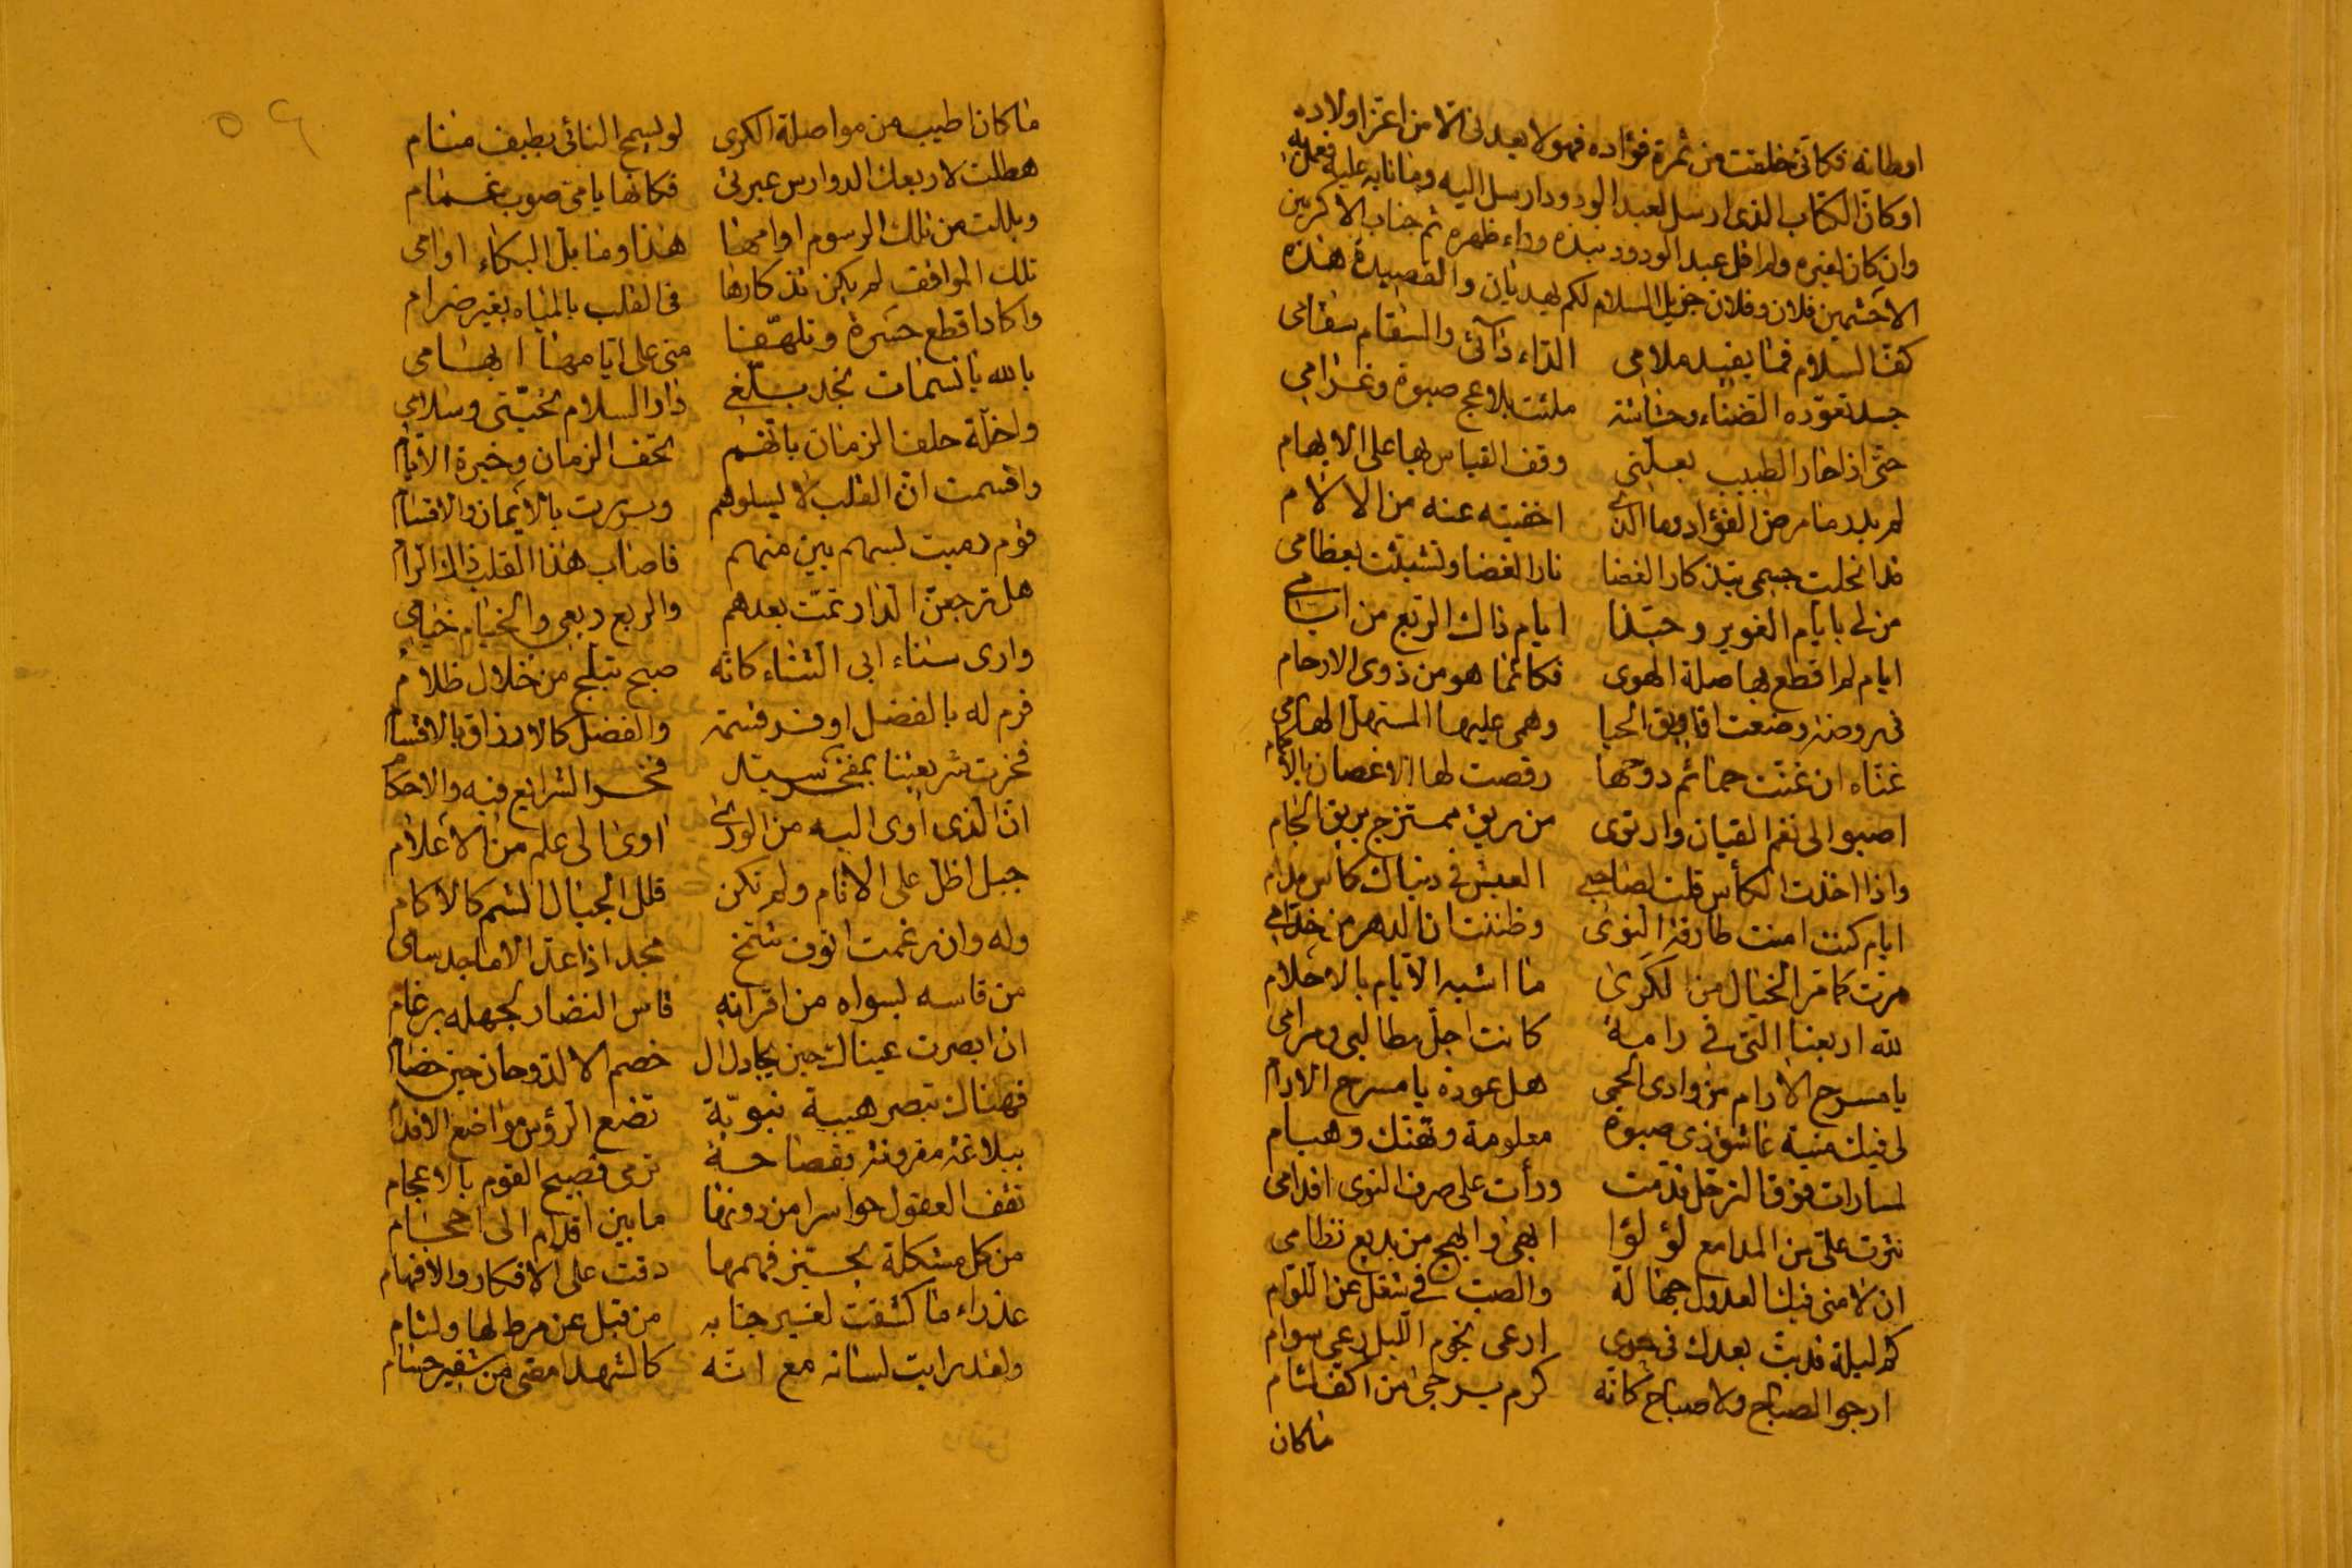 اوطانه فكأنى خلقت من ثمرة فؤاده فهو لا يعدنى الا من اعز اولاده
او كان الكتاب الذى ارسل لعبد الودود ارسل اليه وما نابه عليه فعل به
وان كان لغيره ولم اقل عبد الودود نبذه وراء ظهره ثم جناب الاكرمين
الاحتثمين فلان وفلان جزيل السلام لكم يهديان والقصيدة هذه
كف الملام فما يفيد ملامى الداء دآئى والسقام سقامى
جسد تعوده الضناء وحشاشة ملئت بلاعج صبوة وغرامى
حتى اذا حار الطبيب بعلتى وقف القياس بها على الابهام
لم يدر ما مرض الفؤاد وما الذى اخفيته عنه من الآلام
قد انحلت جسمى بتذكار الغضا نار الغضا وتشبثت بعظامى
من لى بايام الغوير وحبذا ايام ذاك الربع من ايامى
ايام لم اقطع بها صلة الهوى فكأنما هو من ذوى الارحام
فى روضة رضعت افاويق الحيا وهمى عليها المستهل الهامى
غناء ان غنت حمائم دوحها رقصت لها الاغصان بالاكمام
اصبوا الى نغم القيان وارتوى من ريق ممتزج بريق الجام
واذا اخذت الكأس قلت لصاحبى العيش فى دنياك كأس مدام
ايام كنت امنت طارقة النوى وظننت ان الدهر من خدامى
مرت كما مر الخيال من الكرى ما اشبه الايام بالاحلام
لله اربعنا التى فى رامة كانت اجل مطالبى ومرامى
يا مسرح الآرام من وادى الحمى هل عودة يا مسرح الآرام
لى فيك منية عاشق ذى صبوة معلومة وتهتك وهيام
لما رات فوق الترحل قدمت ورأت على صرف النوى اقدامى
نثرت على من المدامع لؤلؤا ابهى وابهج من بديع نظامى
ان لامنى فيك العذول جهالة والصب فى شغل عن اللوام
كم ليلة قد بت بعدك فى جوى ارعى نجوم الليل رعى سوام
ارجو الصباح ولا صباح كأنه كرم يرجى من اكف لئام
ماكان
٥٩
ما كان اطيب من مواصلة الكرى لو يسمح النائى بطيف منام
هطلت لاربعك الدوارس عبرتى فكأنها يا مى صوب غمام
وبللت من تلك الرسوم اوامها هذا وما بل البكاء اوامى
تلك المواقف لم يكن تذكارها فى القلب بالمياه بغير ضرام
واكاد اقطع حسرة وتلهفا منى على ايامها ابهامى
بالله يا نسمات نجد بلغى دار السلام تحيتى وسلامى
واخلة حلف الزمان بانهم تحف الزمان وخيرة الايام
واقسمت ان القلب لا يسلوهم وبررت بالايمان والاقسام
قوم رميت بسهم بين منهم فاصاب هذا القلب ذاك الرام
هل ترجعن الدار تمت بعدهم والربع ربعى والخيام خيامى
وارى سناء ابى الثناء كانه صبح تبلج من خلال ظلام
قرم له بالفضل اوفر قسمة والفضل كالارزاق بالاقسام
فخرت شريعتنا بمفخر سيد فخر الشرايع فيه والاحكام
ان الذى آوى اليه من الورى آوى الى علم من الاعلام
جبل اظل على الانام ولم تكن قلل الجبال الشم كالاكام
وله وان رغمت انوف شمخ مجد اذا عد الاماجد سامى
من قاسه بسواه من اقرانه قاس النضار لجهله برغام
ان ابصرت عيناك حين يجادل ال خصم الالد وحان حين خصام
فهناك تبصر هيبة نبوية تضع الرؤس مواضع الاقدام
ببلاغة مقرونة بفصاحة ترمى فصيح القوم بالاعجام
تقف العقول حواسرا من دونها ما بين اقدام الى احجام
من كل مشكلة يحير فهمها دقت على الافكار والافهام
عذراء ما كشفت لغير جنابه من قبل عن مرط لها ولثام
ولقد رايت لسانه مع انه كالشهد امضى من شفير حسام